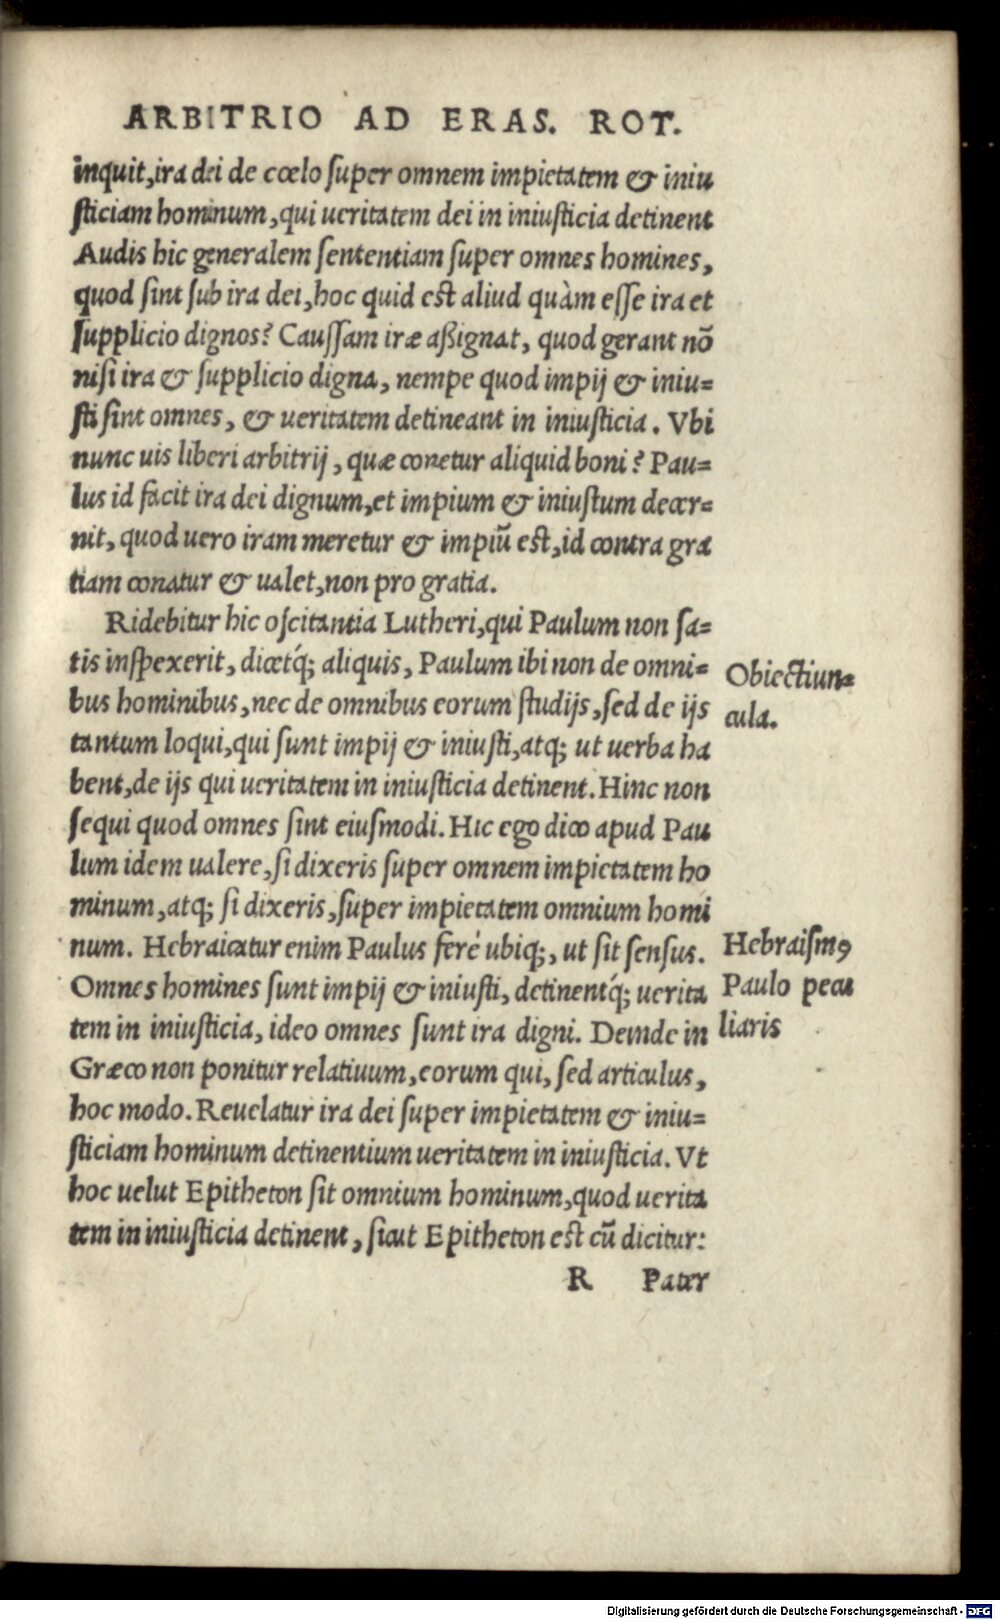 ARBITRIO AD ERAS. ROT.
inquit, ira dei de cœlo super omnem impietatem & iniu
sticiam hominum, qui ueritatem dei in iniusticia detinent
Audis hic generalem sententiam super omnes homines,
quod sint sub ira dei, hoc quid est aliud quàm esse ira et
supplicio dignos? Caussam iræ aßignat, quod gerant nõ
nisi ira & supplicio digna, nempe quod impij & iniu=
sti sint omnes, & ueritatem detineant in iniusticia. Vbi
nunc uis liberi arbitrij, quæ conetur aliquid boni? Pau=
lus id facit ira dei dignum, et impium & iniustum decer=
nit, quod uero iram meretur & impiũ est, id contra gra
tiam conatur & ualet, non pro gratia.
Ridebitur hic oscitantia Lutheri, qui Paulum non sa=
tis inspexerit, dicetq́; aliquis, Paulum ibi non de omni=
bus hominibus, nec de omnibus eorum studijs, sed de ijs
tantum loqui, qui sunt impij & iniusti, atq; ut uerba ha
bent, de ijs qui ueritatem in iniusticia detinent. Hinc non
sequi quod omnes sint eiusmodi. Hic ego dico apud Pau
lum idem ualere, si dixeris super omnem impietatem ho
minum, atq; si dixeris, super impietatem omnium homi
num. Hebraicatur enim Paulus ferè ubiq;, ut sit sensus.
Omnes homines sunt impij & iniusti, detinentq́; uerita
tem in iniusticia, ideo omnes sunt ira digni. Deinde in
Græco non ponitur relatiuum, eorum qui, sed articulus,
hoc modo. Reuelatur ira dei super impietatem & iniu=
sticiam hominum detinentium ueritatem in iniusticia. Vt
hoc uelut Epitheton sit omnium hominum, quod uerita
tem in iniusticia detinent, sicut Epitheton est cũ dicitur:
R Pater
Obiectiun=
cula.
Hebraismꝰ
Paulo pecu
liaris
Digitalisierung gefördert durch die Deutsche Forschungsgemeinschaft - DFG